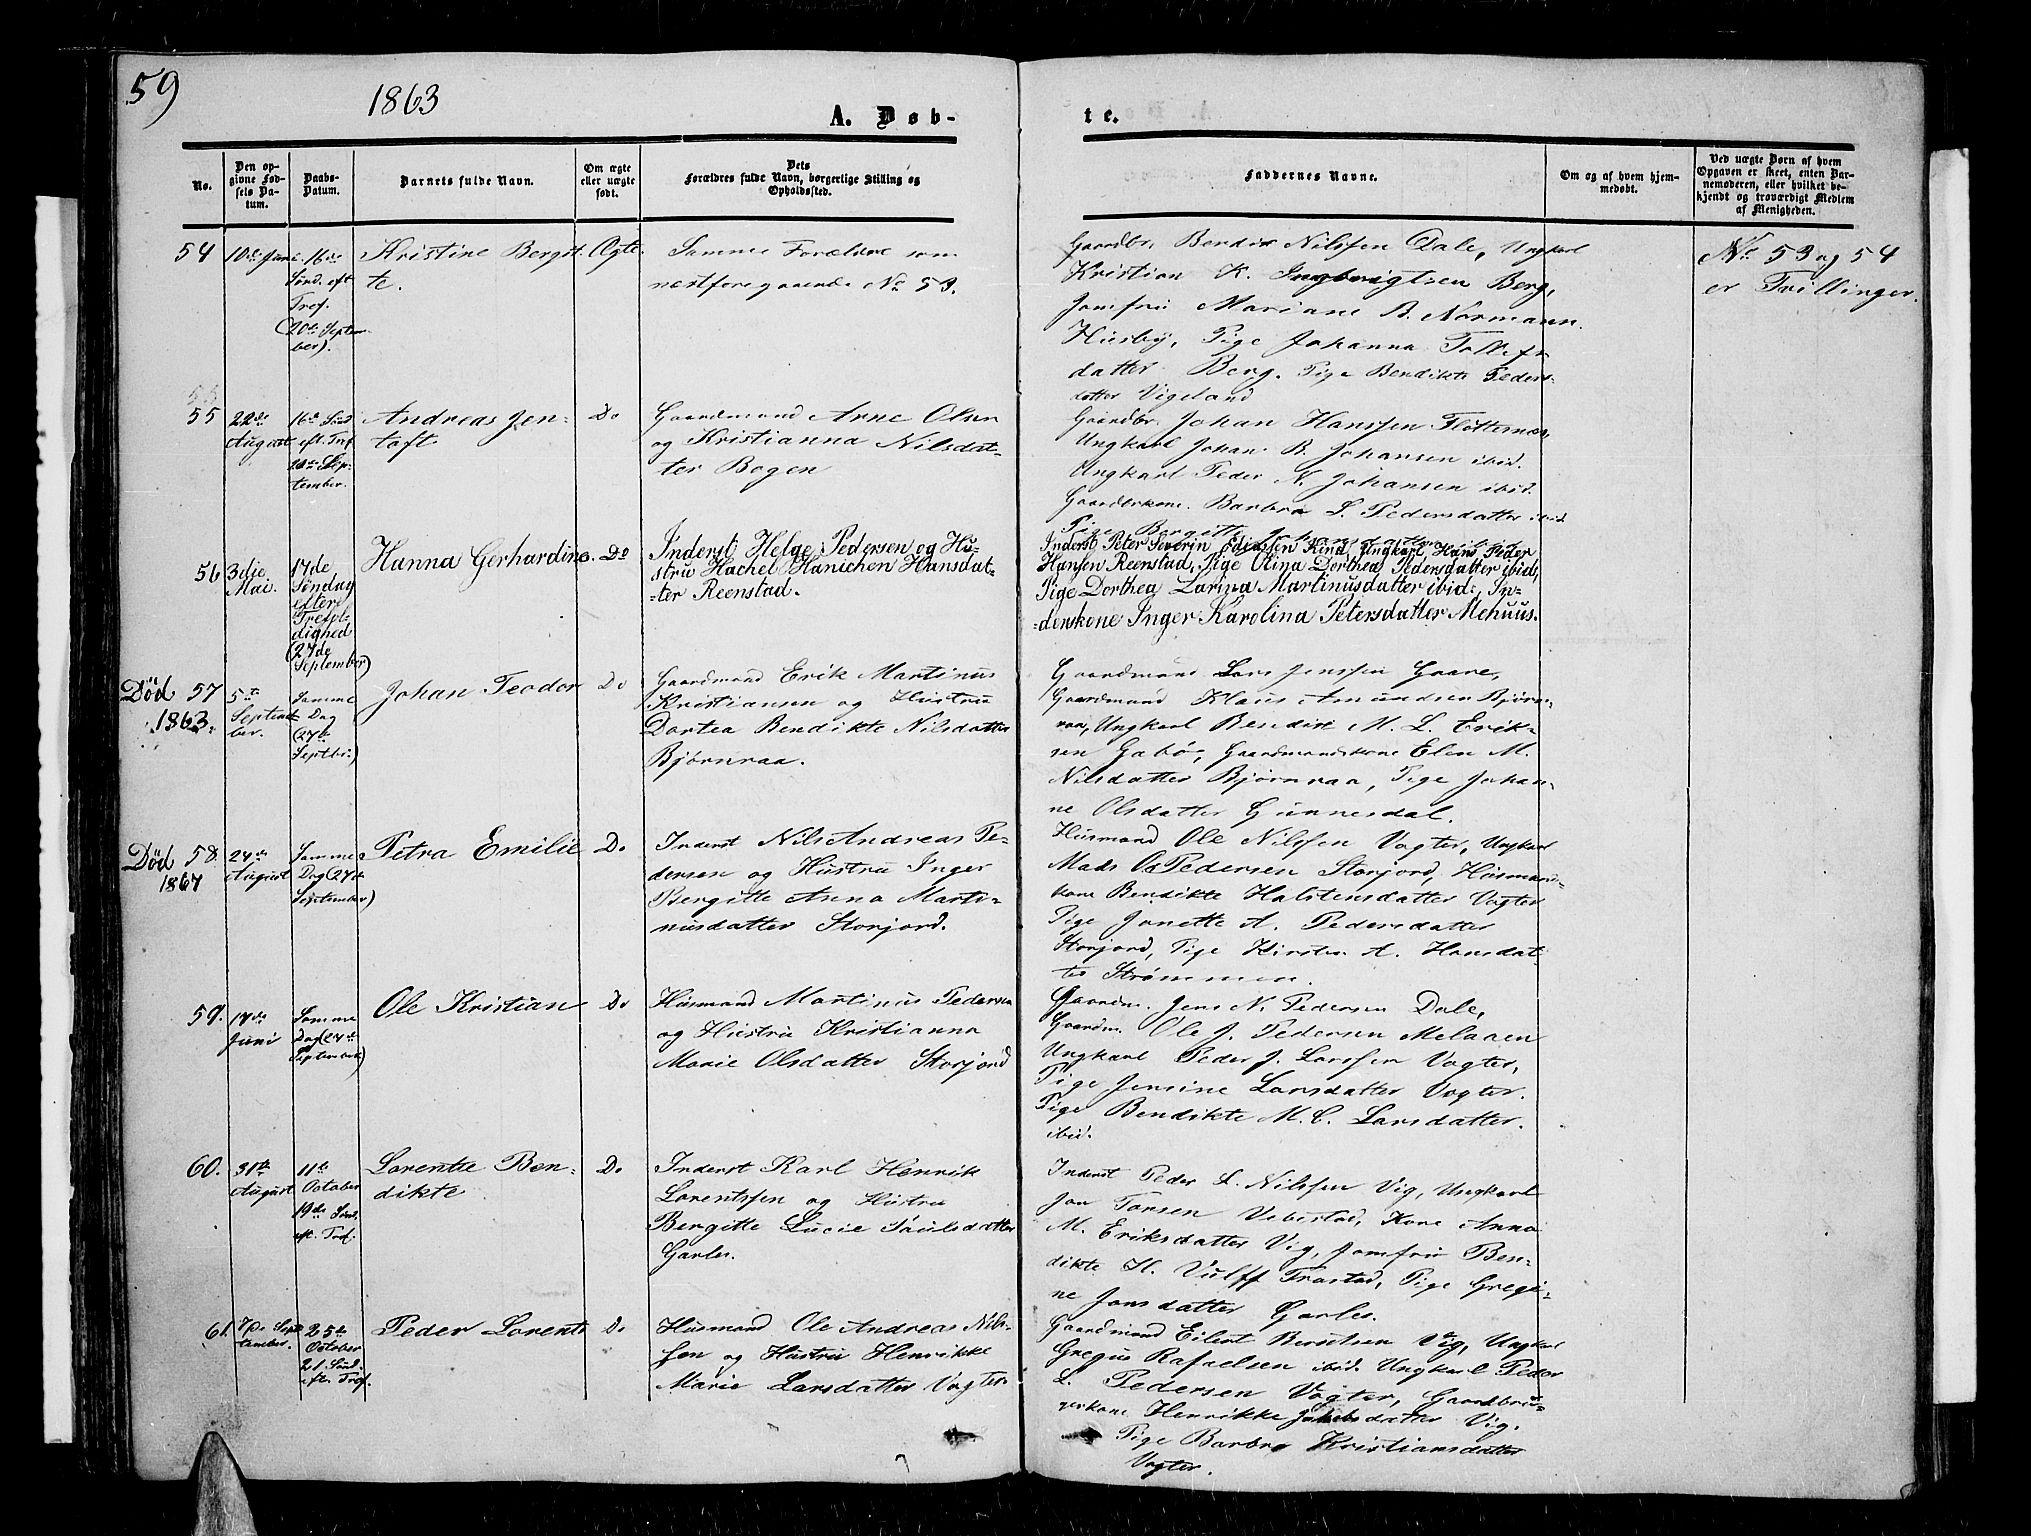 59
1863
A. Døb-
te.
No.
Den op-
givne Fød-
sels Da-
tum.
Daabs-
Datum.
Barnets fulde Navn.
Om ægte
eller uægte
født.
Dets
Forældres fulde Navn, borgerlige Stilling og
Opholdssted.
Faddernes Navne.
Om og af hvem hjem-
medøbt.
Ved uægte Børn af hvem
Opgaven er skeet, enten Bar-
nemoderen, eller hvilket be-
kjendt og troværdigt Medlem
af Menigheden.
54
10de Juni
16de
Sønd. eft
Tref.
(20de Septem-
ber).
Kristine Bergit-
te.
Ægte.
Samme Forældre som
næstforegaaende No 53.
Gaardbr. Bendix Nilssen Dale, Ungkarl
Kristian K. Ingbrigtsen Berg,
Jomfru Mariane B. Normann
Husby, Pige Johanna Tollefs-
datter Berg. Pige Bendikte Peders-
datter Vigeland
No 53 og 54
er Tvillinger.
55
22de
August
16de Sønd
eft. Tref
20de Sep-
tember.
Andreas Jen-
toft.
Do
Gaardmand Arne Olsen
og Kristianna Nilsdat-
ter Bogen
Gaardbr. Johan Hanssen Flottenes,
Ungkarl Johan B. Johansen ibid.
Ungkarl Peder N. Johansen ibid.
Gaarderkone. Barbra L. Pedersdatter ibid
Pige Bergitte Johansdatter ibid
56
3die
Mai.
17de
Søndag
efter
Trefol-
dighed
(27de
September)
Hanna Gerhardine.
Do
Inderst Helge Pedersen og Hu-
stru Hachel Hanichen Hansdat-
-ter Reenstad.
Inderst Peter Severin Ediassen Kind, Ungkarl Hans Peder
Hansen Reenstad, Pige Olina Dorthea Pedersdatter ibid,
Pige Dorthea Larina Martinusdatter ibid., In-
-derskone Inger Karolina Petersdatter Mehuus.
Død
1863.
57
5te
Septem-
ber.
Samme
Dag
(27de
Septbr.)
Johan Teodor
Do
Gaardmand Erik Martinus
Kristiansen og Hustru
Dortea Bendikte Nilsdatter
Bjørnraa.
Gaardmand Lars Jenssen Gaare,
Gaardmand Klaus Amundsen Bjørn-
raa, Ungkarl Bendix M. L. Erik-
sen Gabø, Gaardmandskone Elen M.
Nilsdatter Bjørnraa, Pige Johan-
ne Olsdatter Gunnesdal.
Død
1867
58.
24de
August
Samme
Dag (27de
September)
Petra Emilie
Do
Inderst Nils Andreas Pe-
dersen og Hustru Inger
Bergitte Anna Marti-
nusdatter Storjord.
Husmand Ole Nilssen Vogter, Ungkarl
Mads O Pedersen Storjord, Husmands-
kone Bendikte Halstensdatter Vogter
Pige Janette A. Pedersdatter
Storjord, Pige Kirsten A. Hansdat-
ter Strømmen.
59.
17de
Juni
Samme
Dag (27de
September)
Ole Kristian
Do
Husmand Martinus Pedersen
og Hustru Kristianna
Marie Olsdatter Storjord
Gaardm. Jens N. Pedersen Dale,
Gaardm. Ole J. Pedersen Melaaen
Ungkarl Peder J. Larssen Vogter,
Pige Jensine Larsdatter Vogter.
Pige Bendikte M. C. Larsdatter.
ibid.
60.
31te
August
11te
October
19de Sønd.
eft. Tref.
Lorentse Ben-
dikte
Do
Inderst Karl Henrik
Lorentssen og Hustru
Bergitte Lucie Paulsdatter
Garles.
Inderst Peder L. Nilssen Vig, Ungkarl
Jon Torsen Vebestad, Kone Anna
M. Eriksdatter Vig, Jomfru Ben-
dikte H. Vulff Trastad, Pige Gregi-
ne Jonsdatter Garles.
61.
7de Sep-
tember.
25de
October
21. Sønd.
eft. Tref.
Peder Lorents
Do
Husmand Ole Andreas Nils-
sen og Hustru Henrikke
Marie Larsdatter Vogter.
Gaardmand Eilert Berntsen Vig, Ungkarl
Gregus Rafaelsen ibid. Ungkarl Peder
L. Pedersen Vogter, Gaardbru-
gerkone Henrikke Jakobsdatter Vig.
Pige Barbra Kristiansdatter
Vogter.